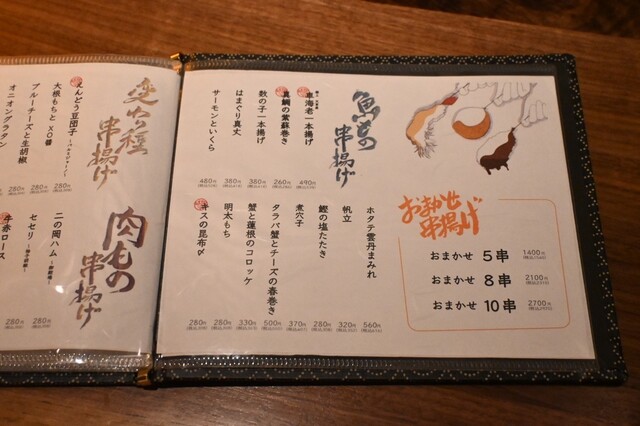 おまかせ
串揚げ
おまかせ 5串 1400円
おまかせ 8串 2100円
おまかせ 10串 2700円
魚もの
串揚げ
車海老一本揚げ 490円
真鯛の紫蘇巻き 260円
数の子一本揚げ 380円
はまぐり真丈 380円
サーモンといくら 480円
ホタテ雲丹まみれ 560円
帆立 320円
鰹の塩たたき 280円
煮穴子 370円
タラバ蟹とチーズの春巻き 500円
蟹と蓮根のコロッケ 330円
明太もち 280円
キスの昆布〆 280円
変わり種
串揚げ
えんどう豆団子
大根もちとXO醬
ブルーチーズと生胡椒
オニオングラタン
280円
280円
280円
肉もの
串揚げ
二の岡ハム
セセリ
牛赤ロース
280円
280円